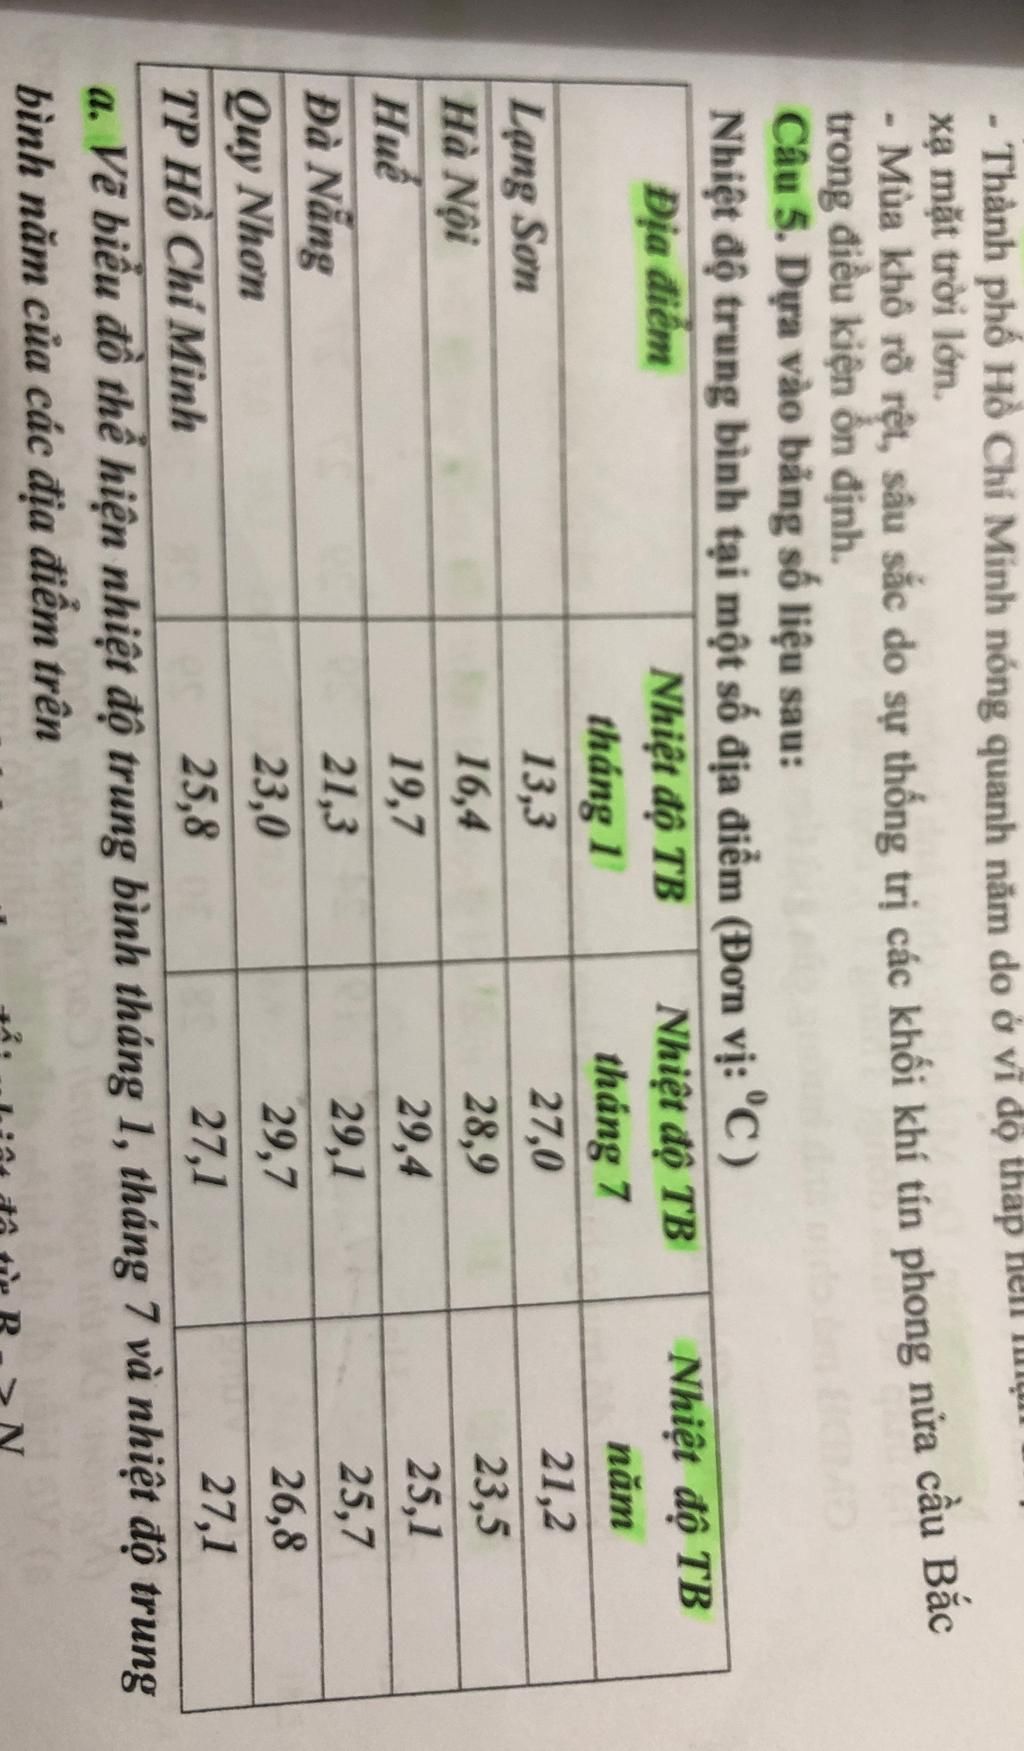 - Thành phố Hồ Chí Minh nóng quanh năm do ở vĩ độ thấp nên
xạ mặt trời lớn.
- Mùa khô rõ rệt, sâu sắc do sự thống trị các khối khí tín phong nửa cầu Bắc
trong điều kiện ổn định.
Câu 5. Dựa vào bảng số liệu sau:
Nhiệt độ trung bình tại một số địa điểm (Đơn vị: ⁰C )
Địa điểm Nhiệt độ TB tháng 1 Nhiệt độ TB tháng 7 Nhiệt độ TB năm
Lạng Sơn 13,3 27,0 21,2
Hà Nội 16,4 28,9 23,5
Huế 19,7 29,4 25,1
Đà Nẵng 21,3 29,1 25,7
Quy Nhơn 23,0 29,7 26,8
TP Hồ Chí Minh 25,8 27,1 27,1
a. Vẽ biểu đồ thể hiện nhiệt độ trung bình tháng 1, tháng 7 và nhiệt độ trung
bình năm của các địa điểm trên
nhiệt độ từ B -> N